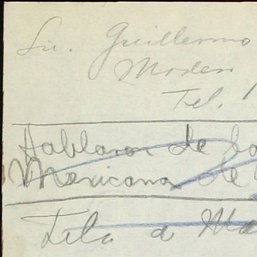 Lic. Guillermo
Moden
Tel. 1
Hablaron de la
Mexicana de
Tels a Ma